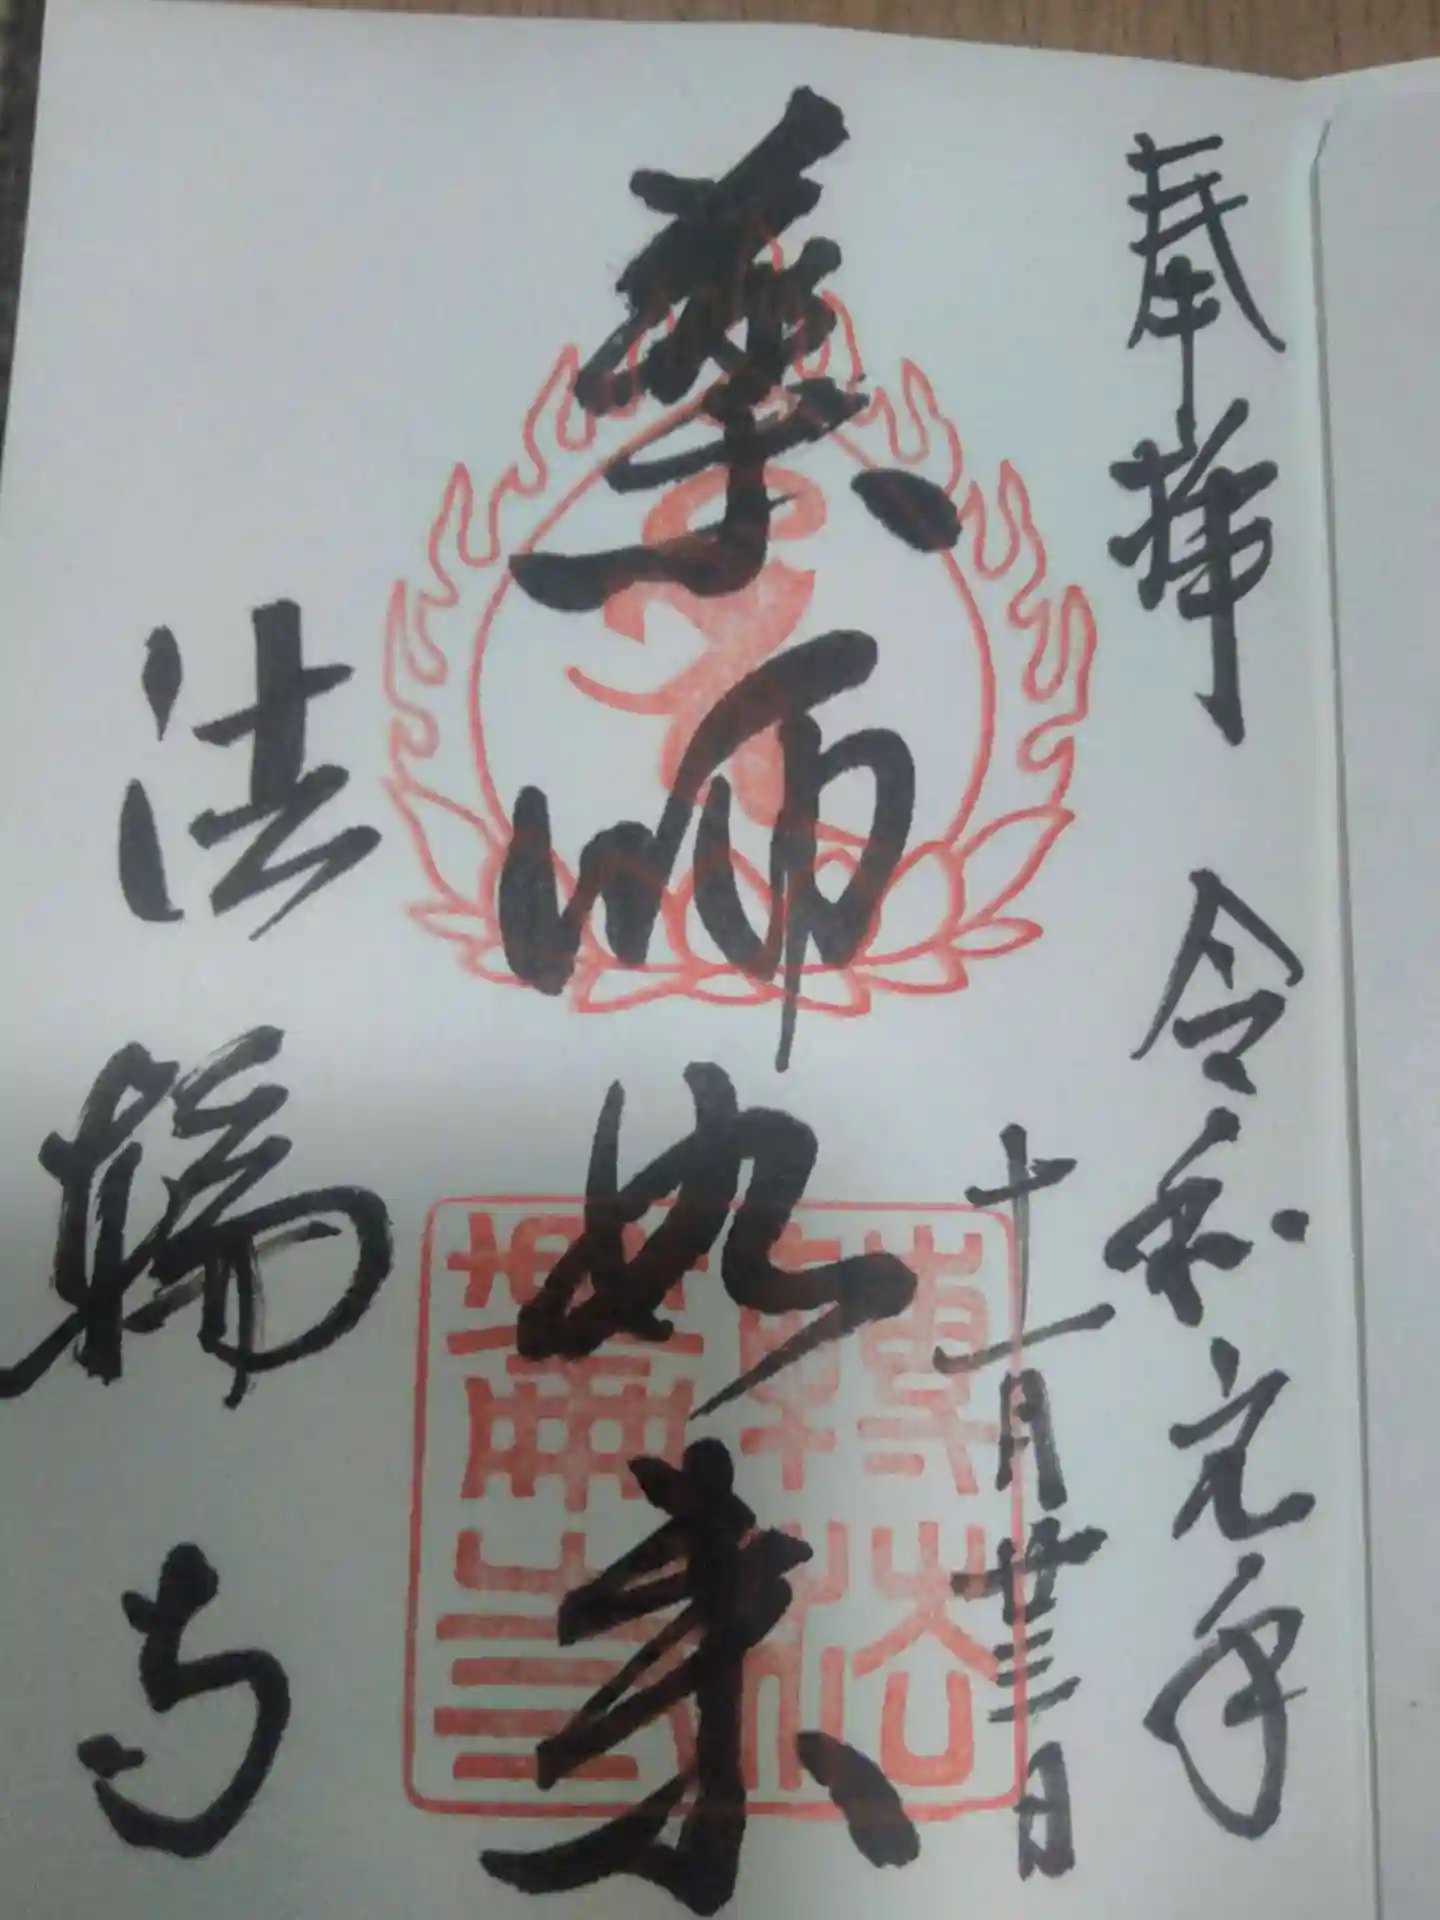 奉拝 令和元年
十一月廿三日
薬師如来
法輪寺